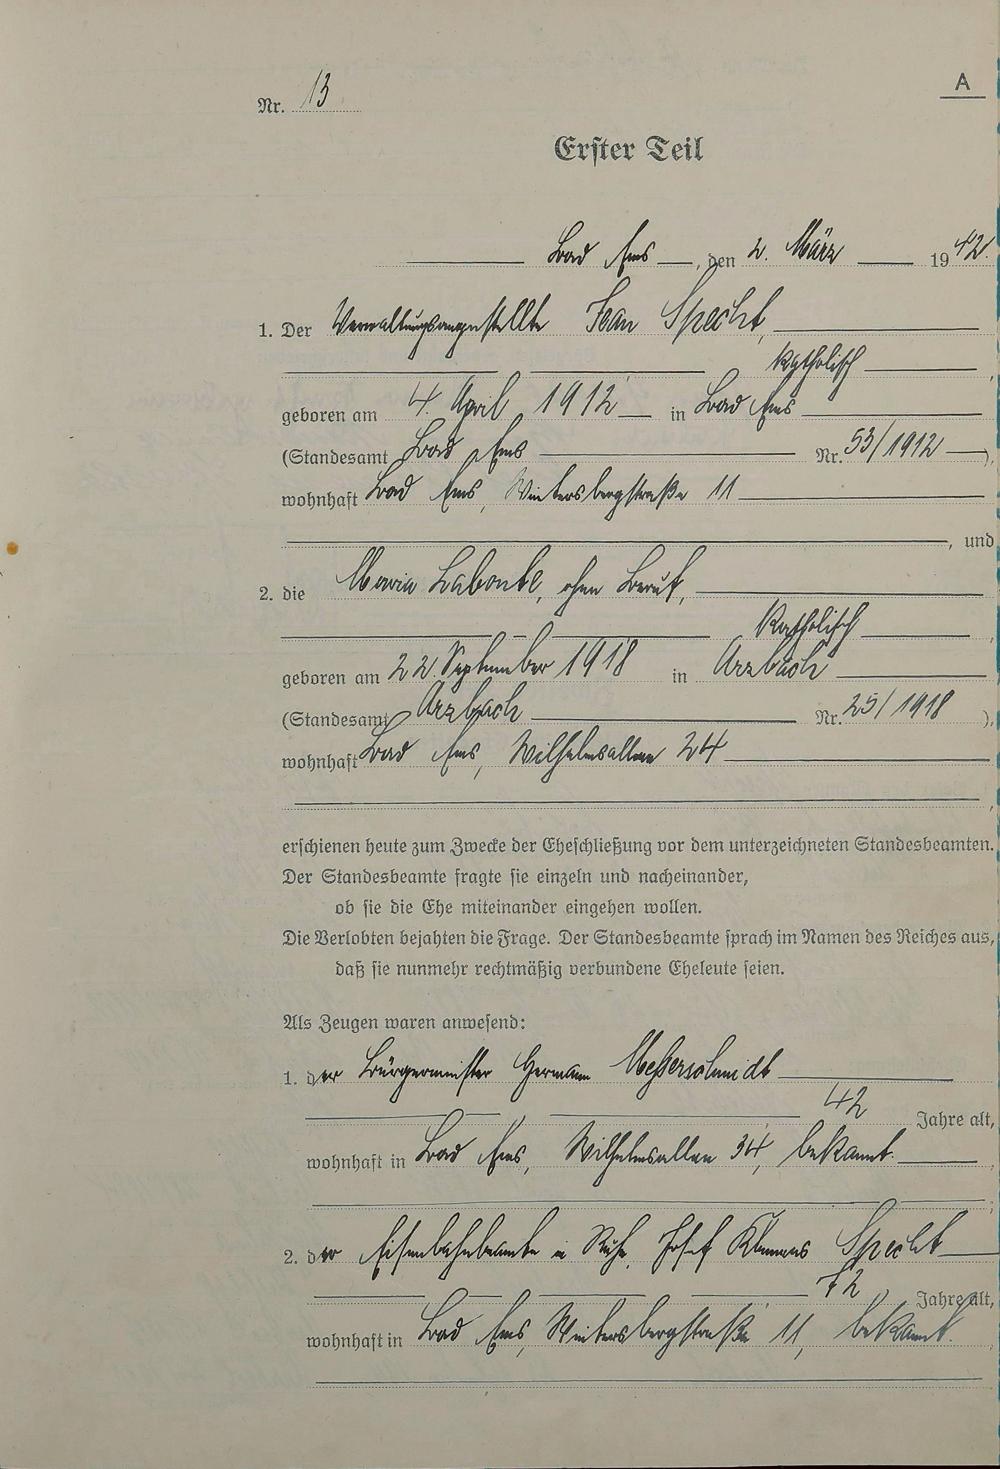 Nr. 13
A
Erster Teil
Bad Ems, den 2. März 1942.
1. Der Verwaltungsangestellte Jean Specht,
katholisch,
geboren am 4. April 1912 in Bad Ems
(Standesamt Bad Ems Nr. 53/1912),
wohnhaft Bad Ems, Wintersbergstraße 11
, und
2. die Maria Labonte, ohne Beruf,
katholisch,
geboren am 22. September 1918 in Arzbach
(Standesamt Arzbach Nr. 25/1918),
wohnhaft Bad Ems, Wilhelmsallee 24
,
erschienen heute zum Zwecke der Eheschließung vor dem unterzeichneten Standesbeamten.
Der Standesbeamte fragte sie einzeln und nacheinander,
ob sie die Ehe miteinander eingehen wollen.
Die Verlobten bejahten die Frage. Der Standesbeamte sprach im Namen des Reiches aus,
daß sie nunmehr rechtmäßig verbundene Eheleute seien.
Als Zeugen waren anwesend:
1. der Bürgermeister Hermann Messerschmidt
42 Jahre alt,
wohnhaft in Bad Ems, Wilhelmsallee 34, bekannt.
;
2. der Eisenbahnbeamte i. Ruhe, Josef Klemens Specht
72 Jahre alt,
wohnhaft in Bad Ems, Wintersbergstraße 11, bekannt.